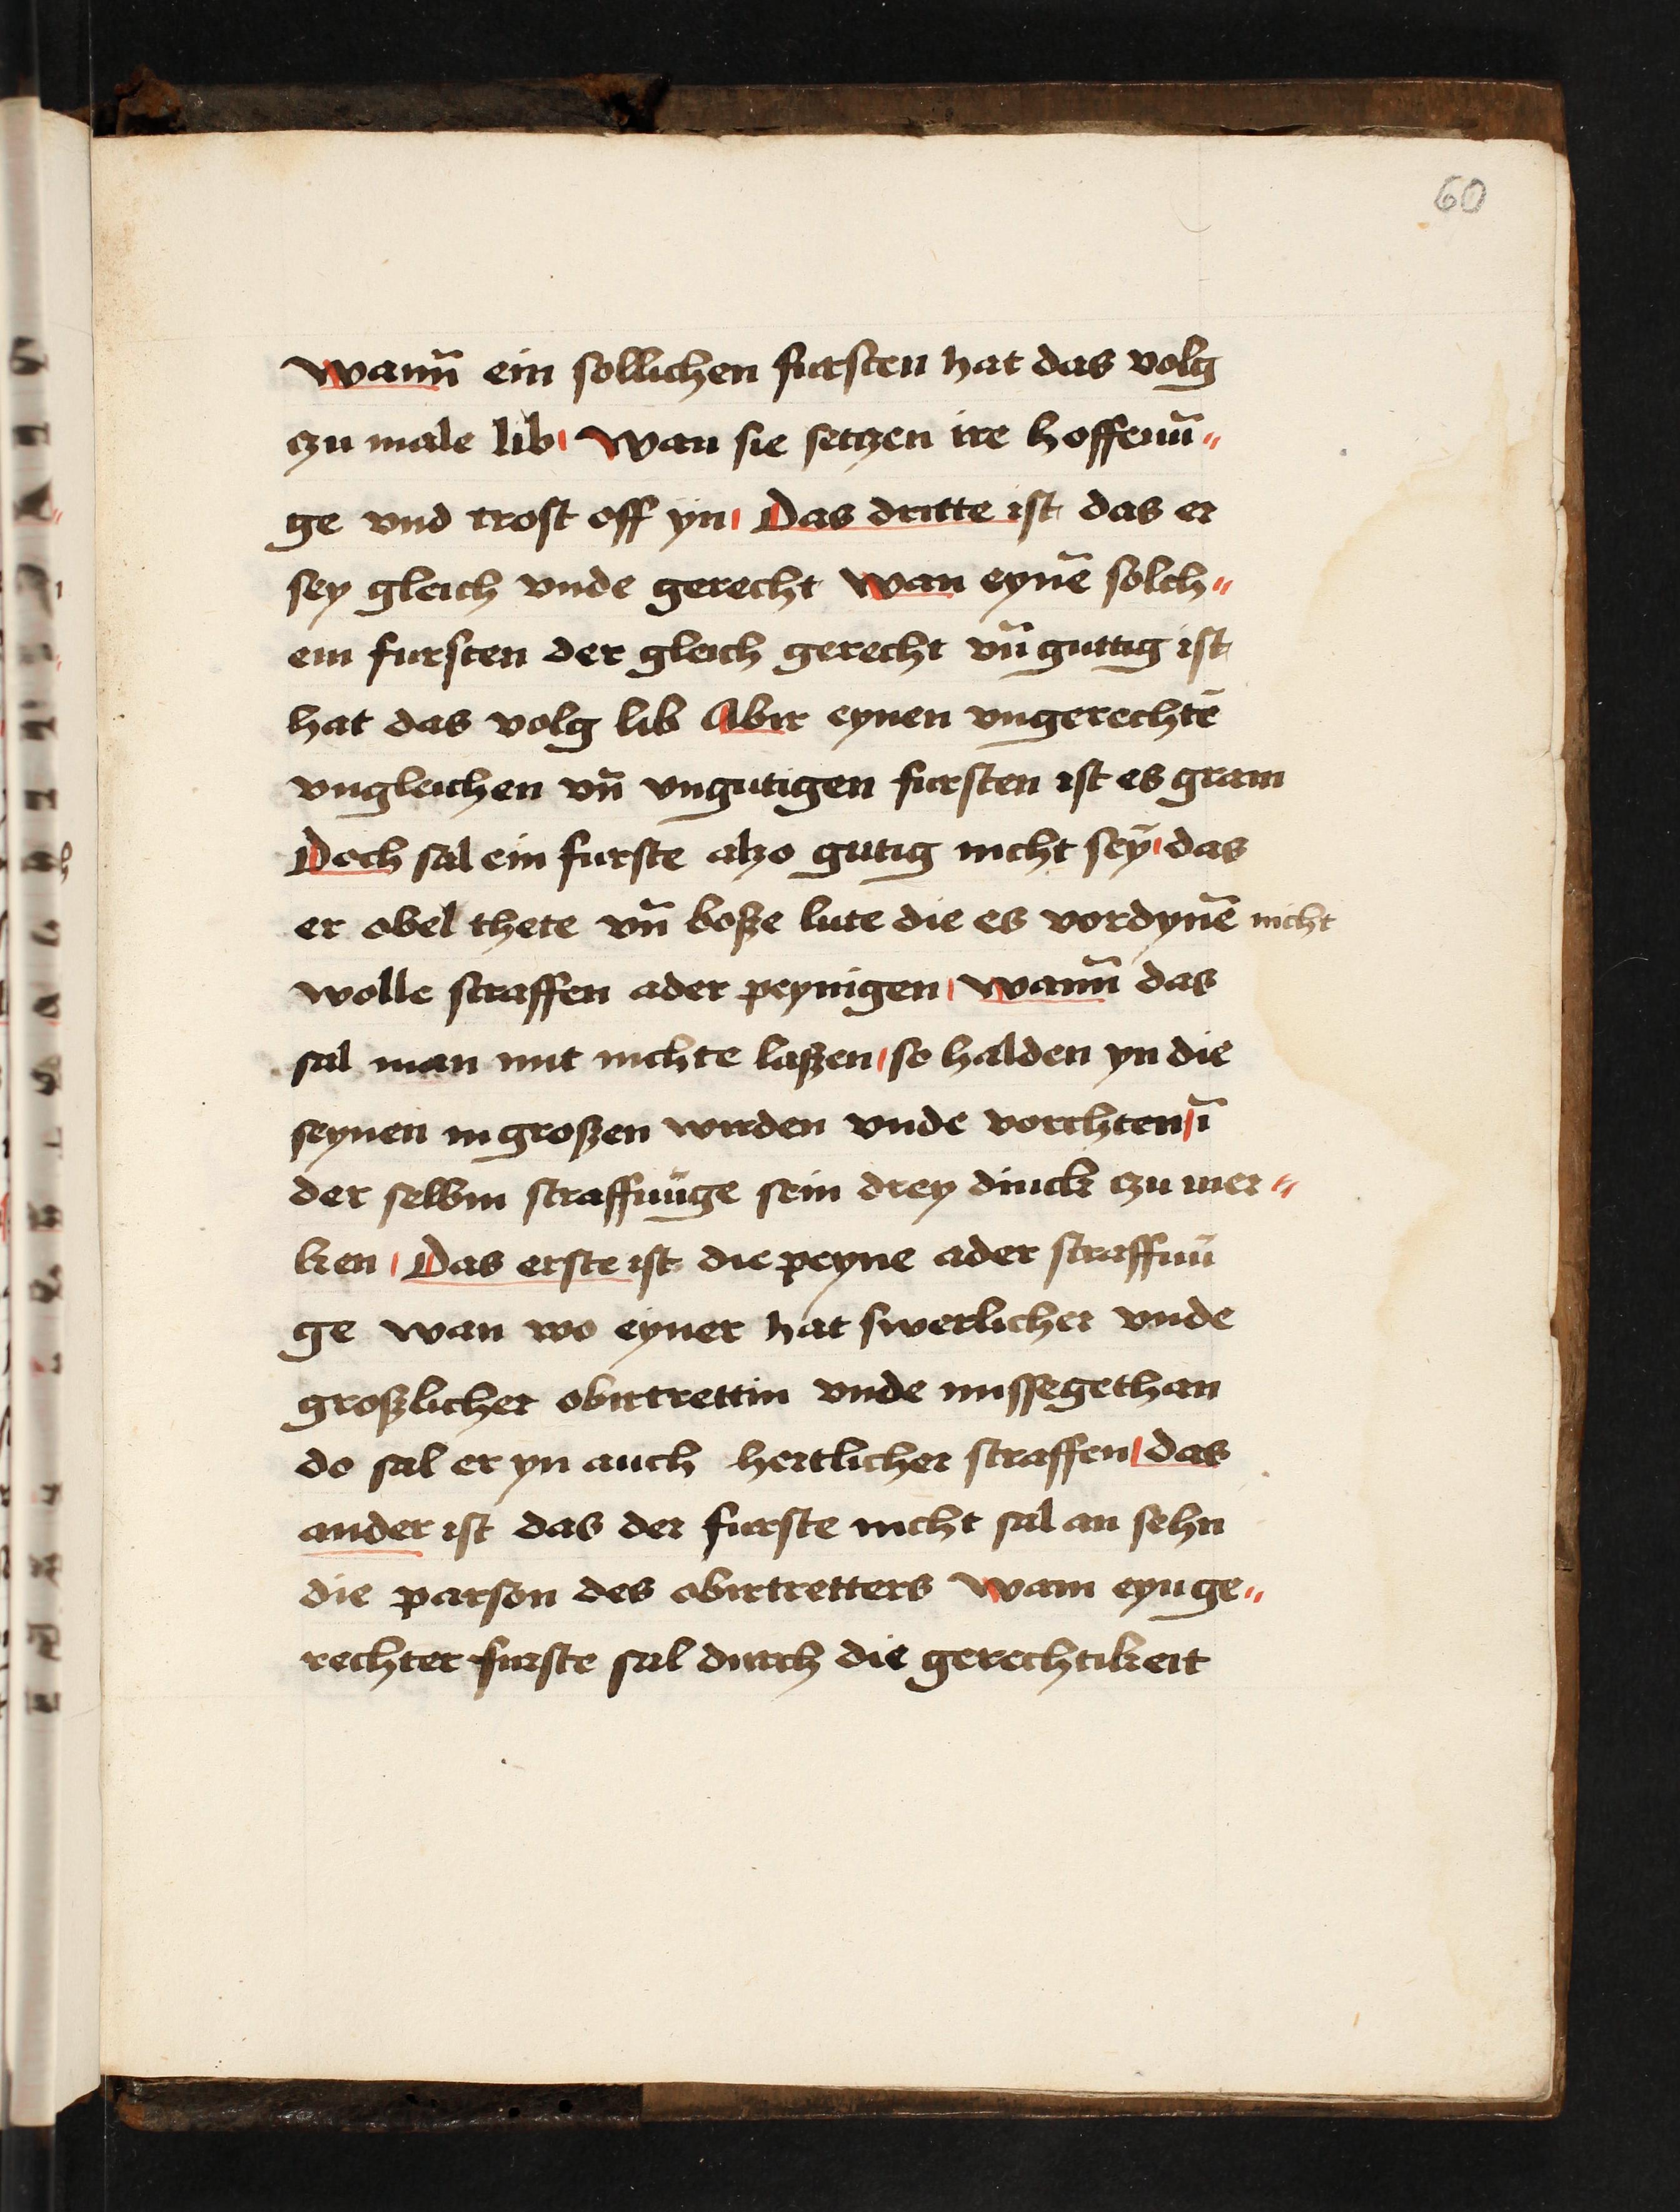 60
wann̄ ein sollichen fursten hat das volg
czu male lib Wan sie setczen ire hoffenū„
ge vnd trost off yn Das dritte ist das er
sey gleich vnde gerecht wan eynē solch„
em fursten der gleich gerecht vn̄ guttig ist
hat das volg lib Abir eynen vngerechtē
vngleichen vn̄ vngutigen fursten ist es gram
Doch sal ein furste alzo gutig nicht sey̅ das
er obel thete vn̄ boße lute die es vordynē nicht
wolle straffen ader peynigen wann̄ das
sal man mit nichte laßen so halden yn die
seynen in großen wirden vnde vorchten ī
der selbin straffūnge sein drey dinck czu mer„
ken Das erste ist die peyne ader straffnū
ge wan wo eyner hat swerlicher vnde
großlicher obirtrettin vnde missegethan
do sal er yn auch hertlicher straffen das
ander ist das der furste nicht sal an sehn
die parson des obirtretters Wam eyn ge„
rechter furste sal durch die gerechtikeit